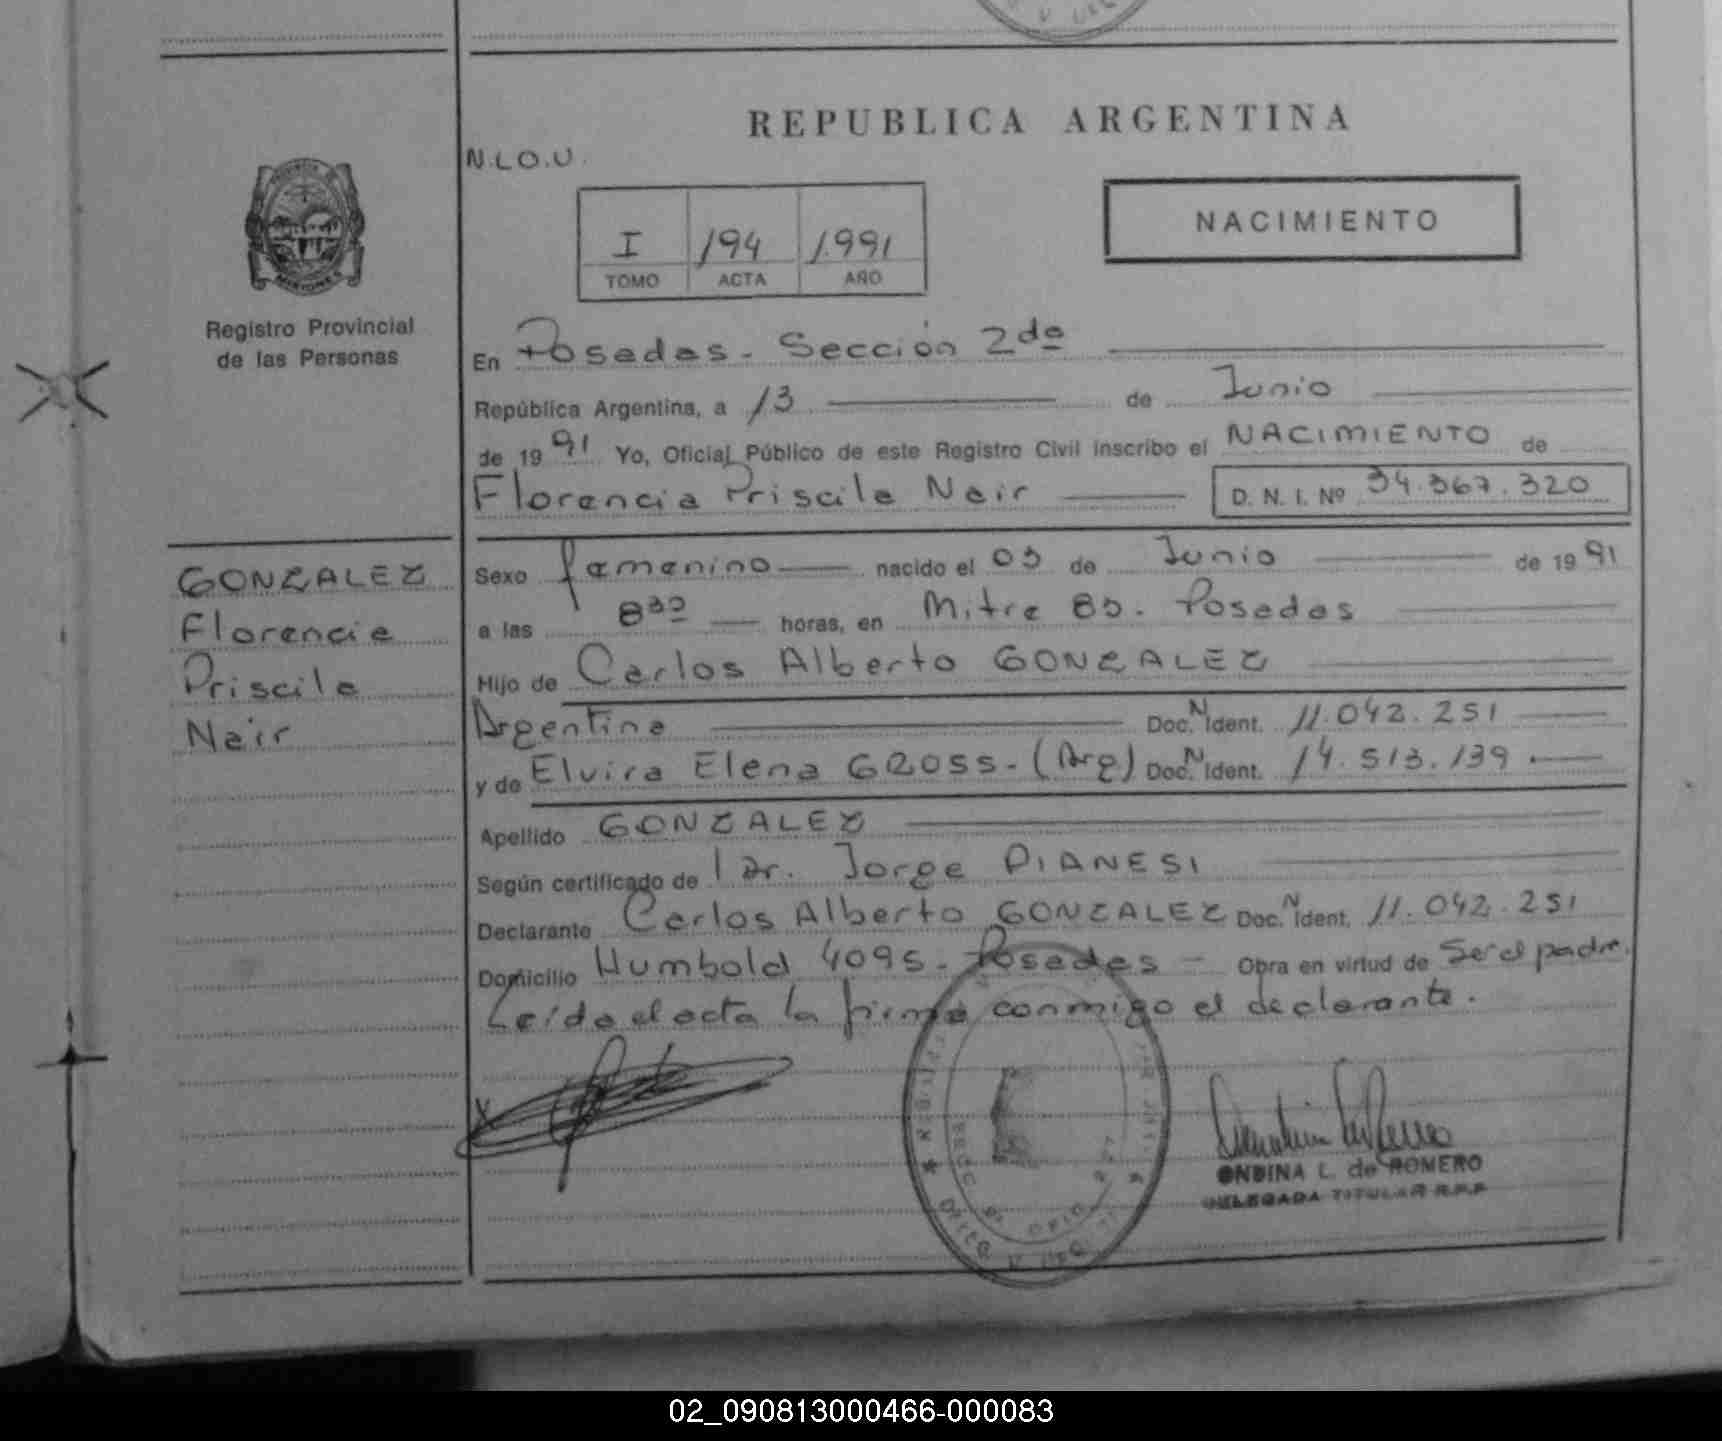 REPUBLICA ARGENTINA
N.I.O.U.
NACIMIENTO
I 194 1.991
TOMO ACTA AÑO
MISIONES
Registro Provincial
de las Personas
En Posadas. Sección 2da
República Argentina, a 13 de Junio
de 1991 Yo, Oficial Público de este Registro Civil inscribo el NACIMIENTO de
Florencia Priscila Nair D. N. I. Nº 34.367.320
GONZALEZ
Florencia
Priscila
Nair
Sexo femenino nacido el 03 de Junio de 1991
a las 8 30 horas, en Mitre 85. Posadas
Hijo de Carlos Alberto GONZALEZ
Argentina Doc. N Ident. 11.042.251
y de Elvira Elena GROSS - (Arg) Doc. N Ident. 14.513.139
Apellido GONZALEZ
Según certificado de l Dr. Jorge PIANESI
Declarante Carlos Alberto GONZALEZ Doc. N Ident. 11.042.251
Domicilio Humbold 4095 - Posadas - Obra en virtud de Ser el padre.
Leída el acta la firma conmigo el declarante.
X
ONDINA L. de ROMERO
DELEGADA TITULAR R.P.P.
02_090813000466-000083